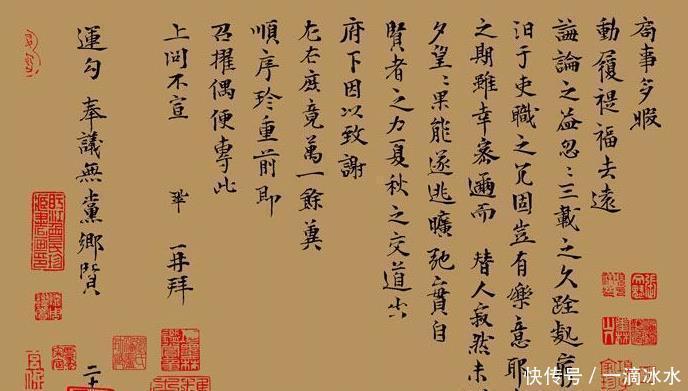 局事多暇
動履禔福去遠
誨論之益忽〻三載之久跧處窮
汩于吏職之冗固豈有樂意耶
之期雖幸密邇而替人寂然未
夕望〻果能遂逃曠弛實自
賢者之力夏秋之交道出
府下因以致謝
左右庶竟萬一餘冀
順序珍重前即
召擢偶便專此
上問不宣 鞏 再拜
運勾奉議無黨鄉賢 二十
快传号/一滴冰水